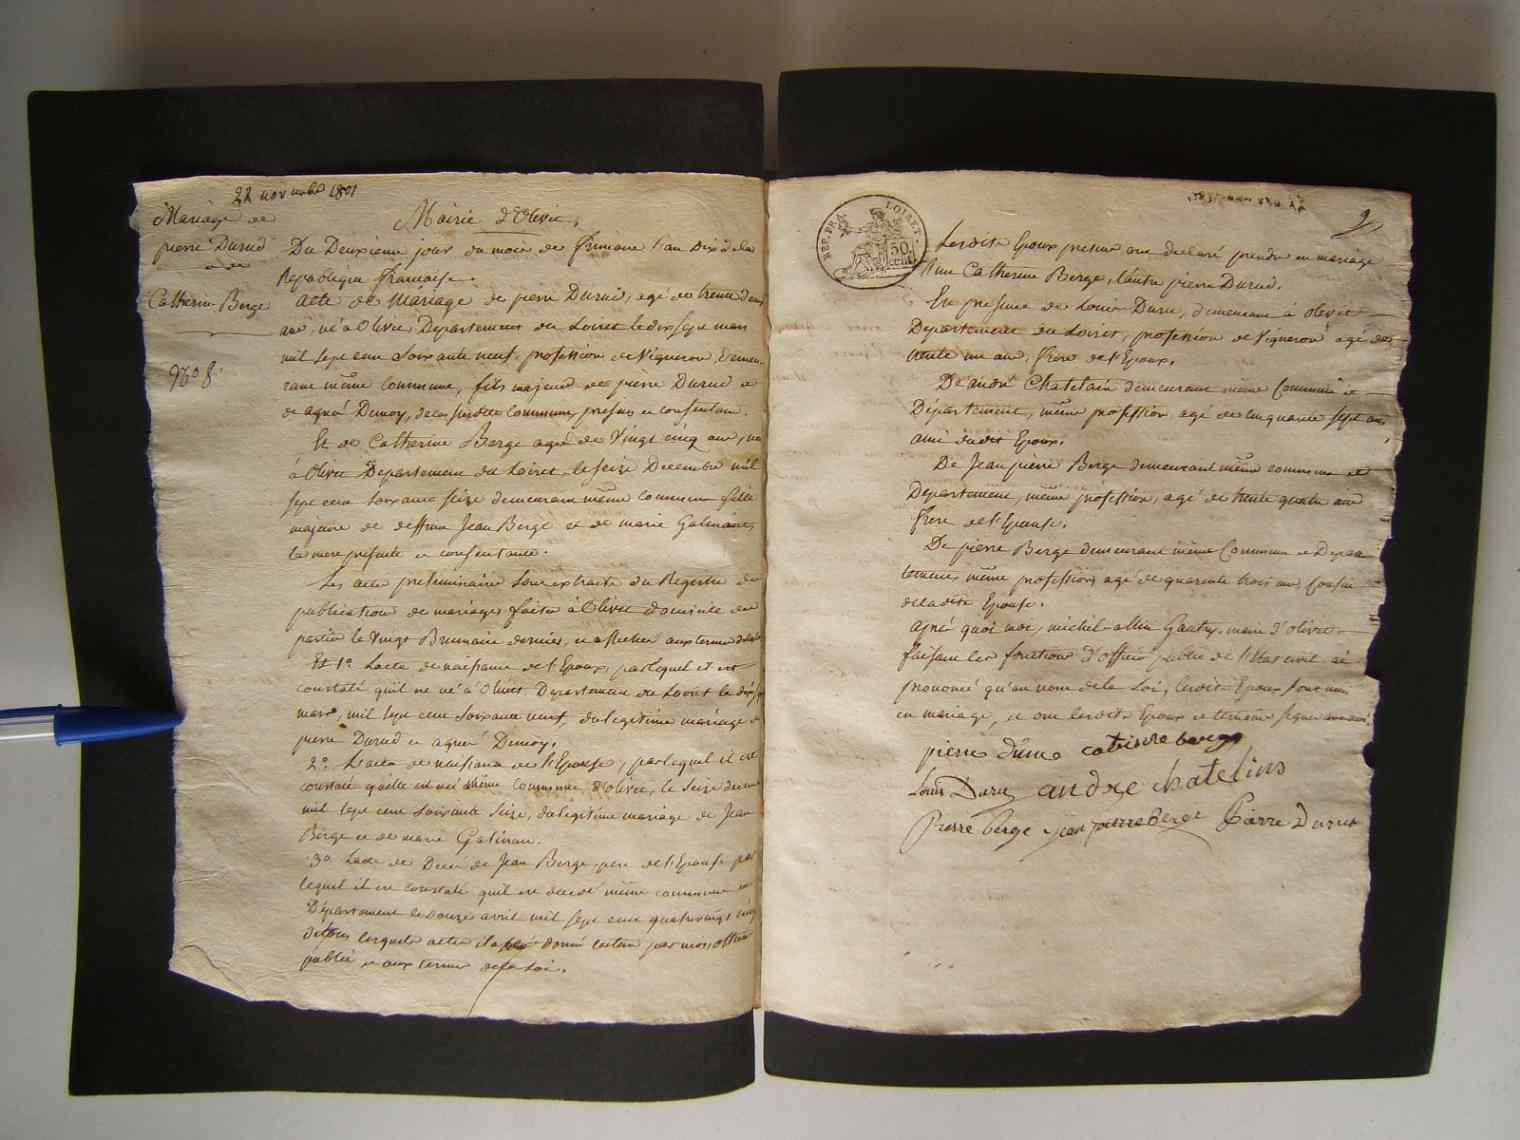 22 novembre 1801
Mariage de
pierre Durud
et de
Catherine Berge
Mairie d'Olivet,
Du Deuxieme jour du mois de frimaire l'an Dix de la
Republique française.
acte de Mariage de pierre Durud, agé de trente deux
ans, né à Olivet Département du Loiret le dix sept mars
mil sept cent soixante neuf, profession de Vigneron, demeu-
rant même Commune, fils majeur de pierre Durud et
de agnés Dunoy, de la susdite Commune, presens et consentans.
Et de Catherine Berge agée de Vingt cinq ans, née
à Olivet Département du Loiret le seize Decembre mil
sept cent soixante seize demeurant même commune fille
majeure de deffunt Jean Berge et de marie Galinand,
la mere presente et consentante.
Les actes preliminaires sont extraits du Registre des
publications de mariages faites à Olivet domicile des
parties le Vingt Brumaire dernier, et afficher aux termes de la loi
Et 1° L'acte de naissance de l'Epoux, par lequel il est
constaté qu'il est né à Olivet Département du Loiret le dix sept
mars, mil sept cent soixante neuf, du legitime mariage de
pierre Durud et agnés Dunoy.
2° L'acte de naissance de l'Epouse, par lequel il est
constaté qu'elle est née même Commune d'Olivet, le seize decembre
mil sept cent soixante seize, du legitime mariage de Jean
Berge et de marie Galinan.
3° L'acte de Décé de Jean Berge, pere de l'Epouse par
lequel il est constaté qu'il est decedé même commune et
Département le douze avril mil sept cent quatrevingt cinq
de tous lesquels actes il a été donné lecture par moi, officier
public et aux termes de la Loi.
REP. FRA. LOIRET.
50
cent.
Lesdits Epoux presens ont declaré prendre en mariage
l'un Catherine Berge, l'autre pierre Durud.
En presence de Louis Duru, demeurant à olivet
Département du Loiret, profession de Vigneron agé de
trente un ans, frere de l'Epoux,
De andré Chatelain demeurant même Commune et
Département, même profession agé de cinquante sept ans
ami dudit Epoux,
De Jean pierre Berge demeurant même commune et
Département, même profession, agé de trente quatre ans
frere de l'Epouse,
De pierre Berge demeurant même Commune et Depar-
tement même profession, agé de quarante trois ans Cousin
de ladite Epouse.
Aprés quoi moi, michel Gautry, maire d'olivet
faisant les fonctions d'officier public de l'état civil ai
prononcé qu'au nom de la Loi, lesdits Epoux sont unis
en mariage, et ont lesdits Epoux et temoins signé avec moi.
pierre
Louis Duru andre chatelins
Pierre berge jean pierre Berge Pierre Durut